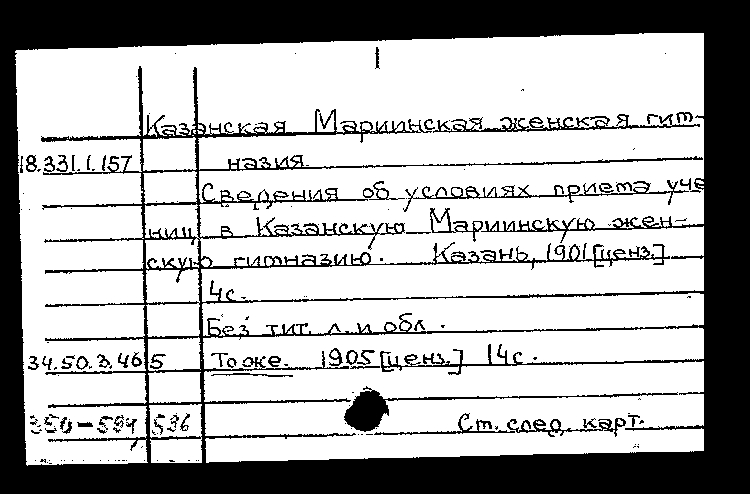 Казанская Мариинская женская гим-
18.331.1.157 назия
Сведения об условиях приема уче
ниц в Казанскую Мариинскую жен-
скую гимназию. Казань, 1901 [ценз.]
4с.
Без тит. л. и обл.
34.50.3.465 То же. 1905 [ценз.] 14с.
350-594 536 Ст. след. карт.